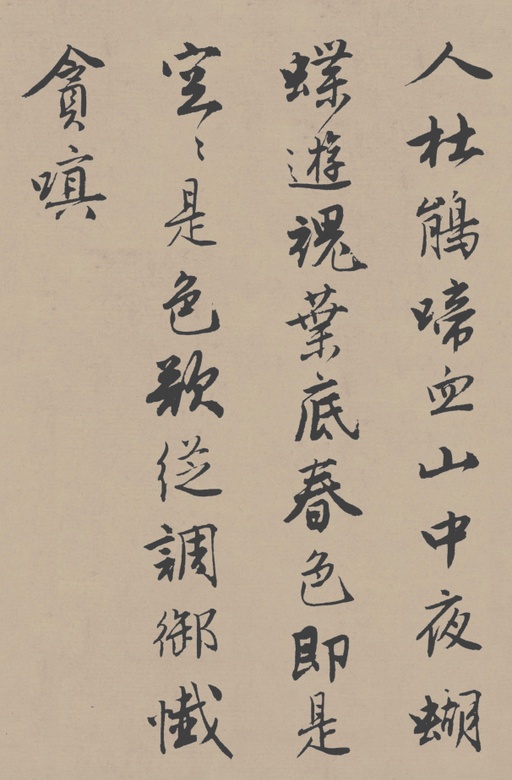 人杜鵑啼血山中夜蝴
蝶遊魂葉底春色即是
空〻是色歡從調御懺
貪嗔